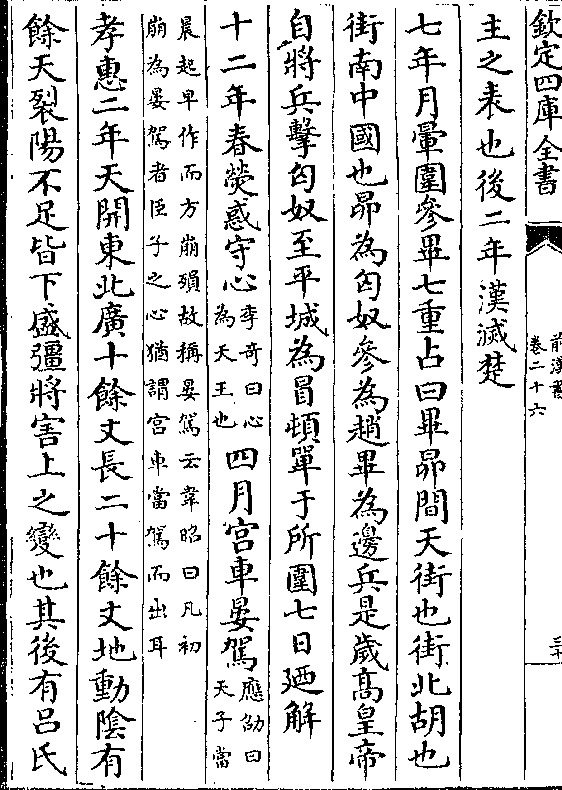 欽定四庫全書
前漢書
卷二十六
三十
主之表也後二年漢滅楚
七年月暈圍參畢七重占曰畢昴間天街也街北胡也
街南中國也昴為匈奴參為趙畢為邊兵是歲高皇帝
自將兵擊匈奴至平城為冒頓單于所圍七日廼解
十二年春熒惑守心李奇曰心為天王也四月宮車晏駕應劭曰天子當
晨起早作而方崩殞故稱晏駕云韋昭曰凡初
崩為晏駕者臣子之心猶謂宮車當駕而出耳
孝惠二年天開東北廣十餘丈長二十餘丈地動陰有
餘天裂陽不足皆下盛彊將害上之變也其後有呂氏